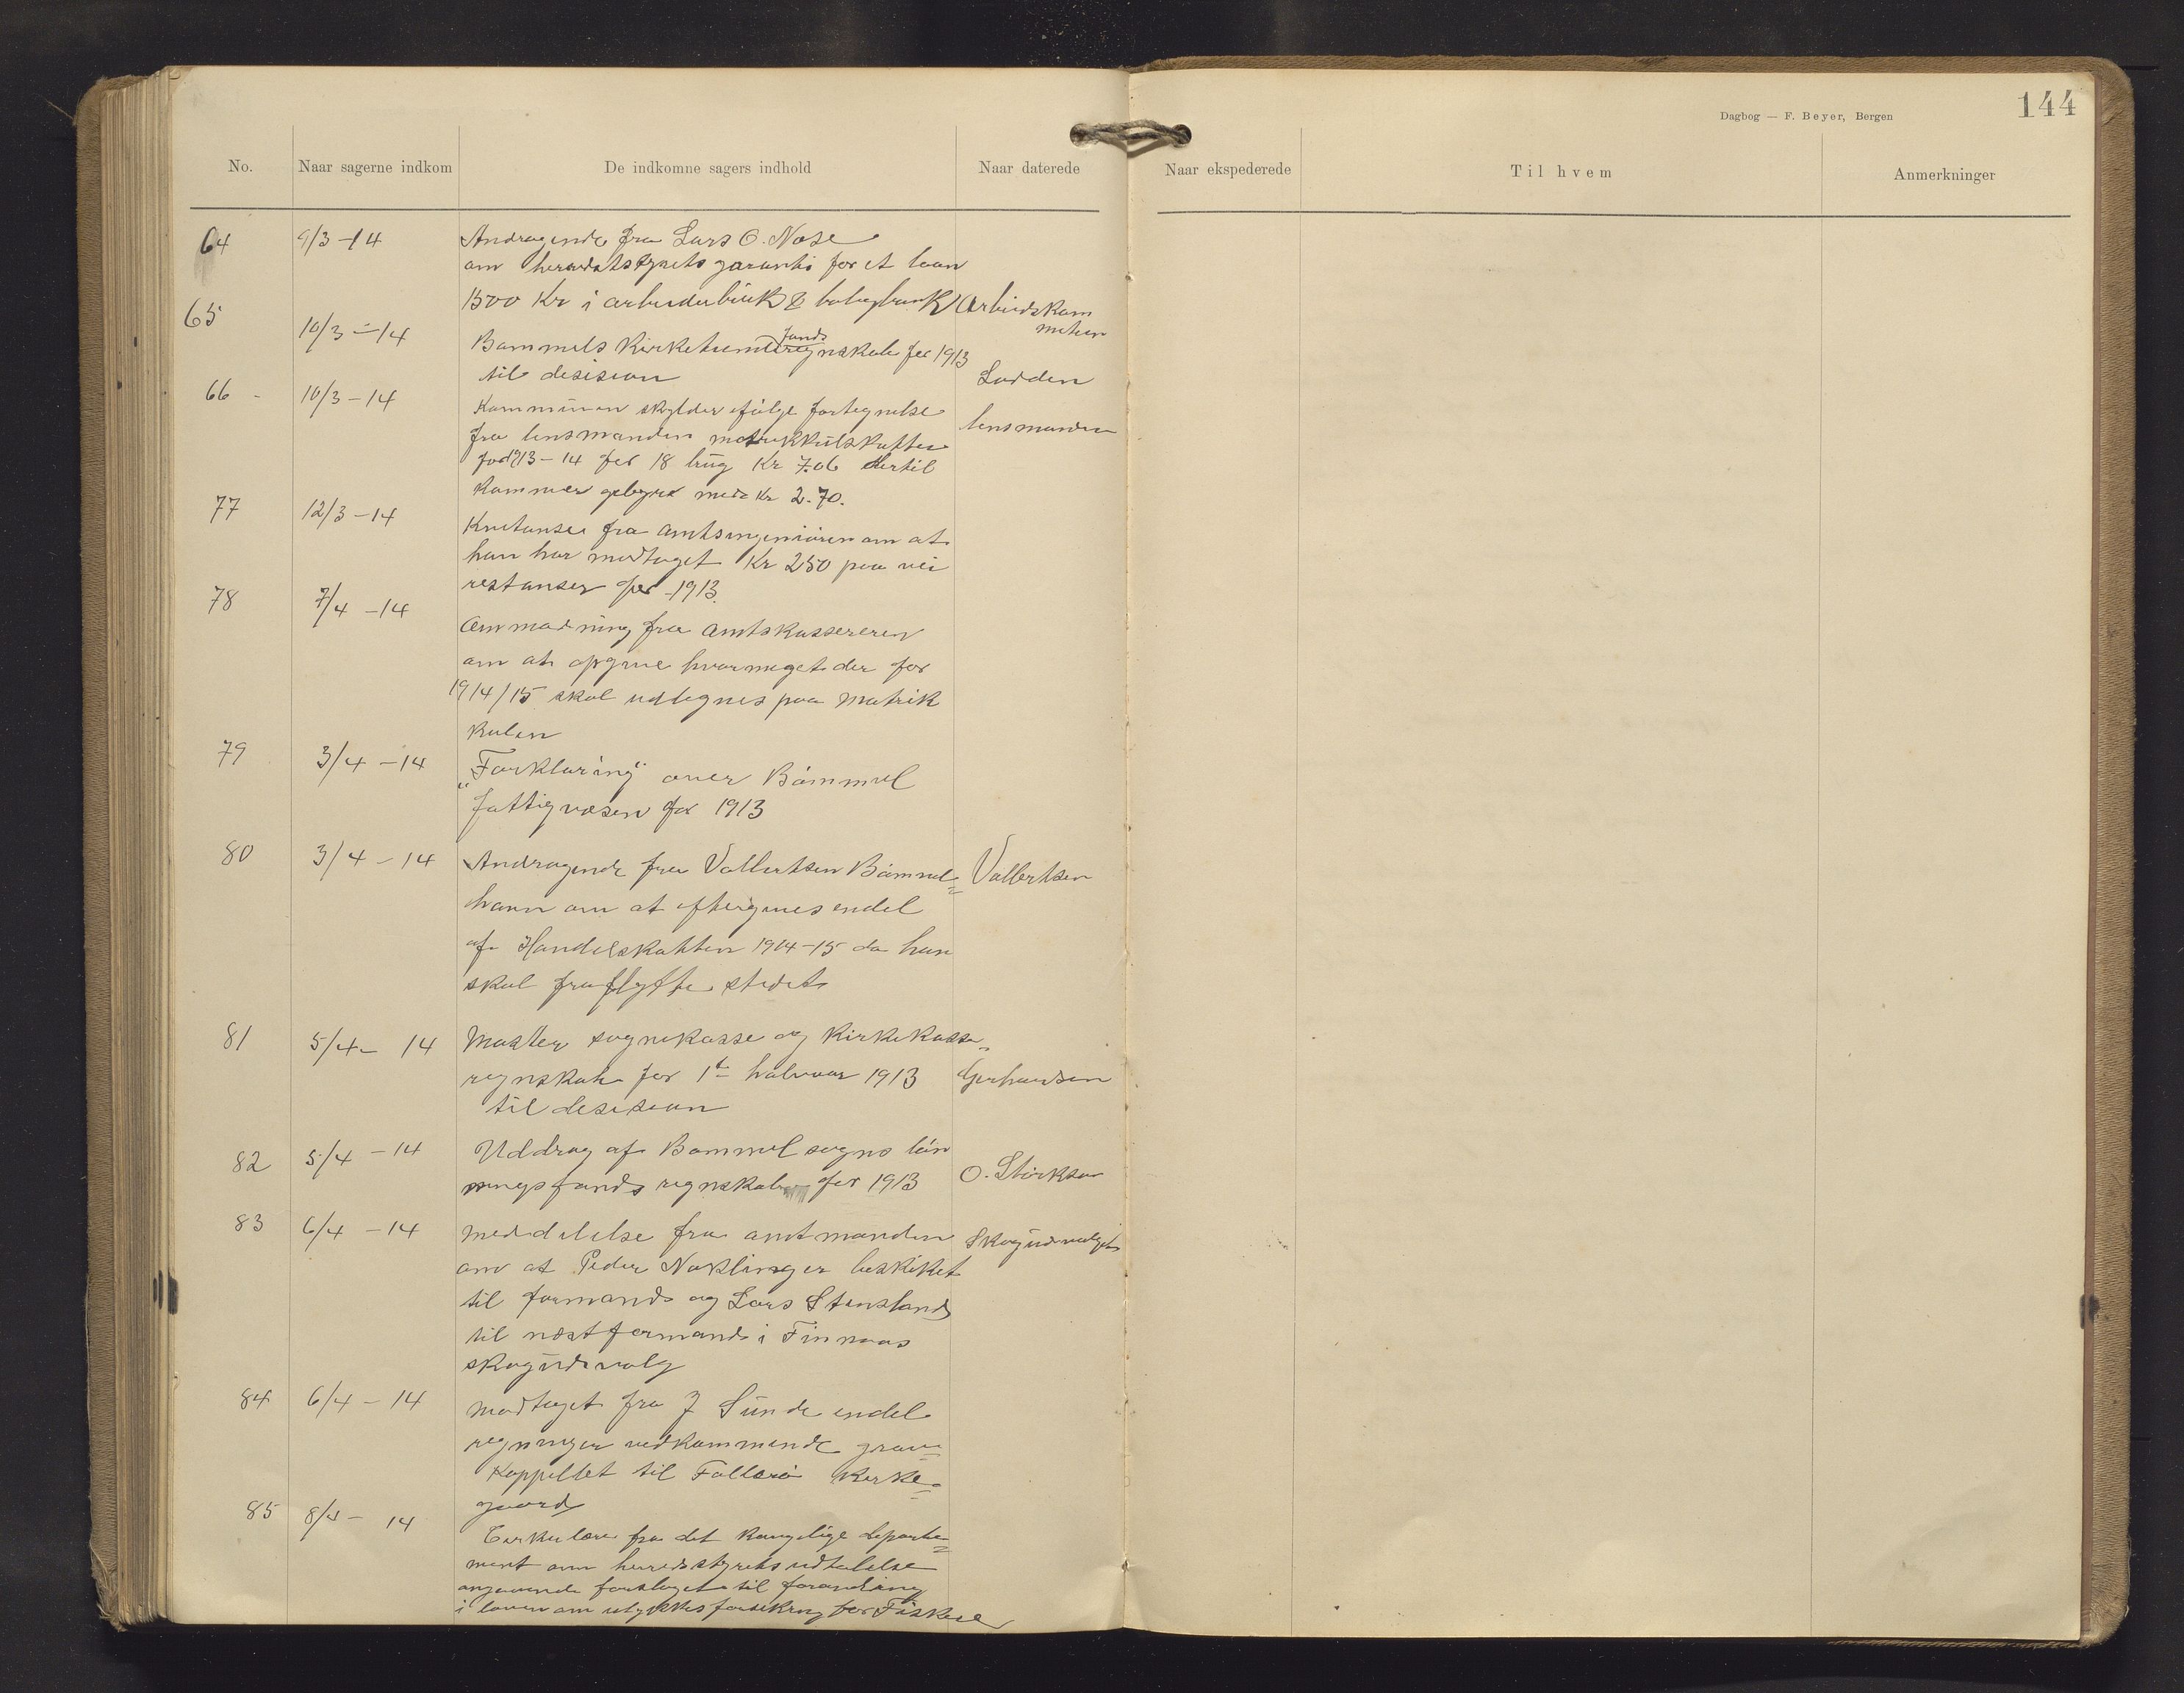 144
Dagbog — F. Beyer, Bergen
No. Naar sagerne indkom De indkomne sagers indhold Naar daterede Naar ekspederede Til hvem Anmerkninger
64 9/3 -14 Andragende fra Lars O. Nese
om herredstyrets garanti for et laan
1500 Kr i arbeiderbruk & boligbank Arbeidskom
miteen
65 10/3 -14 Bømmels Kirketiende fonds regnskab for 1913
til desision Lodden
66 - 10/3 -14 Kommunen skylder ifølge fortegnelse lensmanden
fra lensmanden matrikkülskatten
for 1913-14 for 18 brüg Kr 7.06 Hertil
kommer gebyrer med Kr 2.70.
77 12/3 -14 Kvitanse fra amtsingeniøren om at
han har modtaget Kr 250 paa vei
restanser for 1913.
78 7/4 -14 Anmodning fra amtskassereren
om at opgive hvormeget der for
1914/15 skal udlegnes paa matrik
kulen
79 3/4 -14 "Forklaring" over Bømmel
fattigvæsen for 1913
80 3/4 -14 Andragende fra Vallertsen Bømmel= Vallertsen
havn om at eftergives endel
af Handelskatten 1914-15 da han
skal fraflytte stedet
81 5/4- 14 Moster sognekasse og Kirkekasse=
regnskab for 1te halvaar 1913 Gerhardsen
til desision
82 5/4 -14 Uddrag af Bømmel sogns løn
ningsfonds regnskab for 1913 O. Størksen
83 6/4 -14 meddelelse fra amtmanden Skogüdvalget
om at Peder Nøkling er beskiket
til formand og Lars Stensland
til næstformand i Finnaas
skogüdvalg
84 6/4 -14 modtaget fra J Sünde endel
regninger vedkommende grav=
kappellet til Follerø Kirke=
gaard
85 8/4 - 14 Cirkulære fra det kongelige departe=
ment om herredstyrets udtalelse
angaaende forslaget til forandring
i loven om ulykkesforsikring for Fiskere